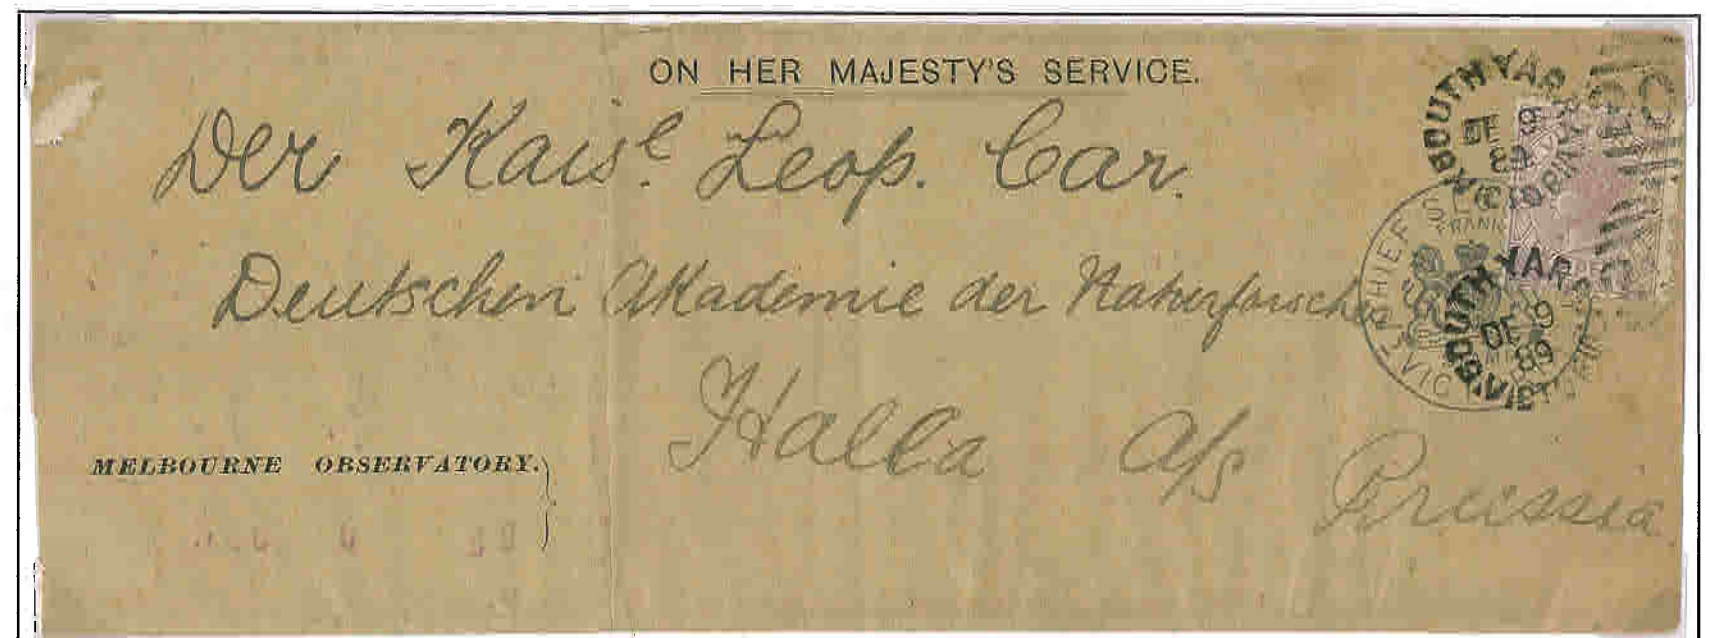 ON HER MAJESTY'S SERVICE.
Der Kaisl. Leop. Car.
Deutschen Akademie der Naturforscher
Halla a/s
Prussia
MELBOURNE OBSERVATORY.
SOUTH YAR
DE 9
89
VICTORIA
CHIEF SEC
FRANK
VIC
SOUTH YAR
DE 9
89
VICTORIA